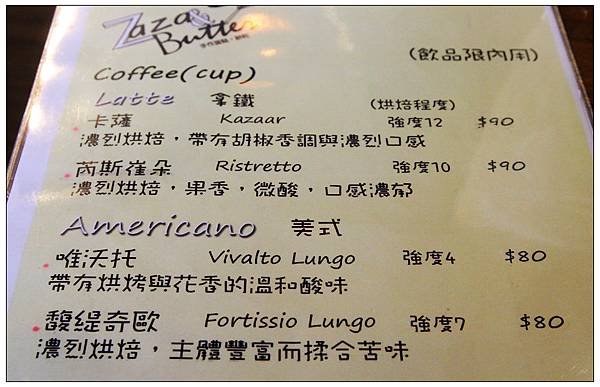 Zaza & Butter
(飲品限內用)
Coffee(cup)
Latte 拿鐵 (烘焙程度)
卡薩 Kazaar 強度12 $90
濃烈烘焙，帶有胡椒香調與濃烈口感
芮斯崔朵 Ristretto 強度10 $90
濃烈烘焙，果香，微酸，口感濃郁
Americano 美式
唯沃托 Vivalto Lungo 強度4 $80
帶有烘烤與花香的溫和酸味
馥緹奇歐 Fortissio Lungo 強度7 $80
濃烈烘焙，主體豐富而揉合苦味